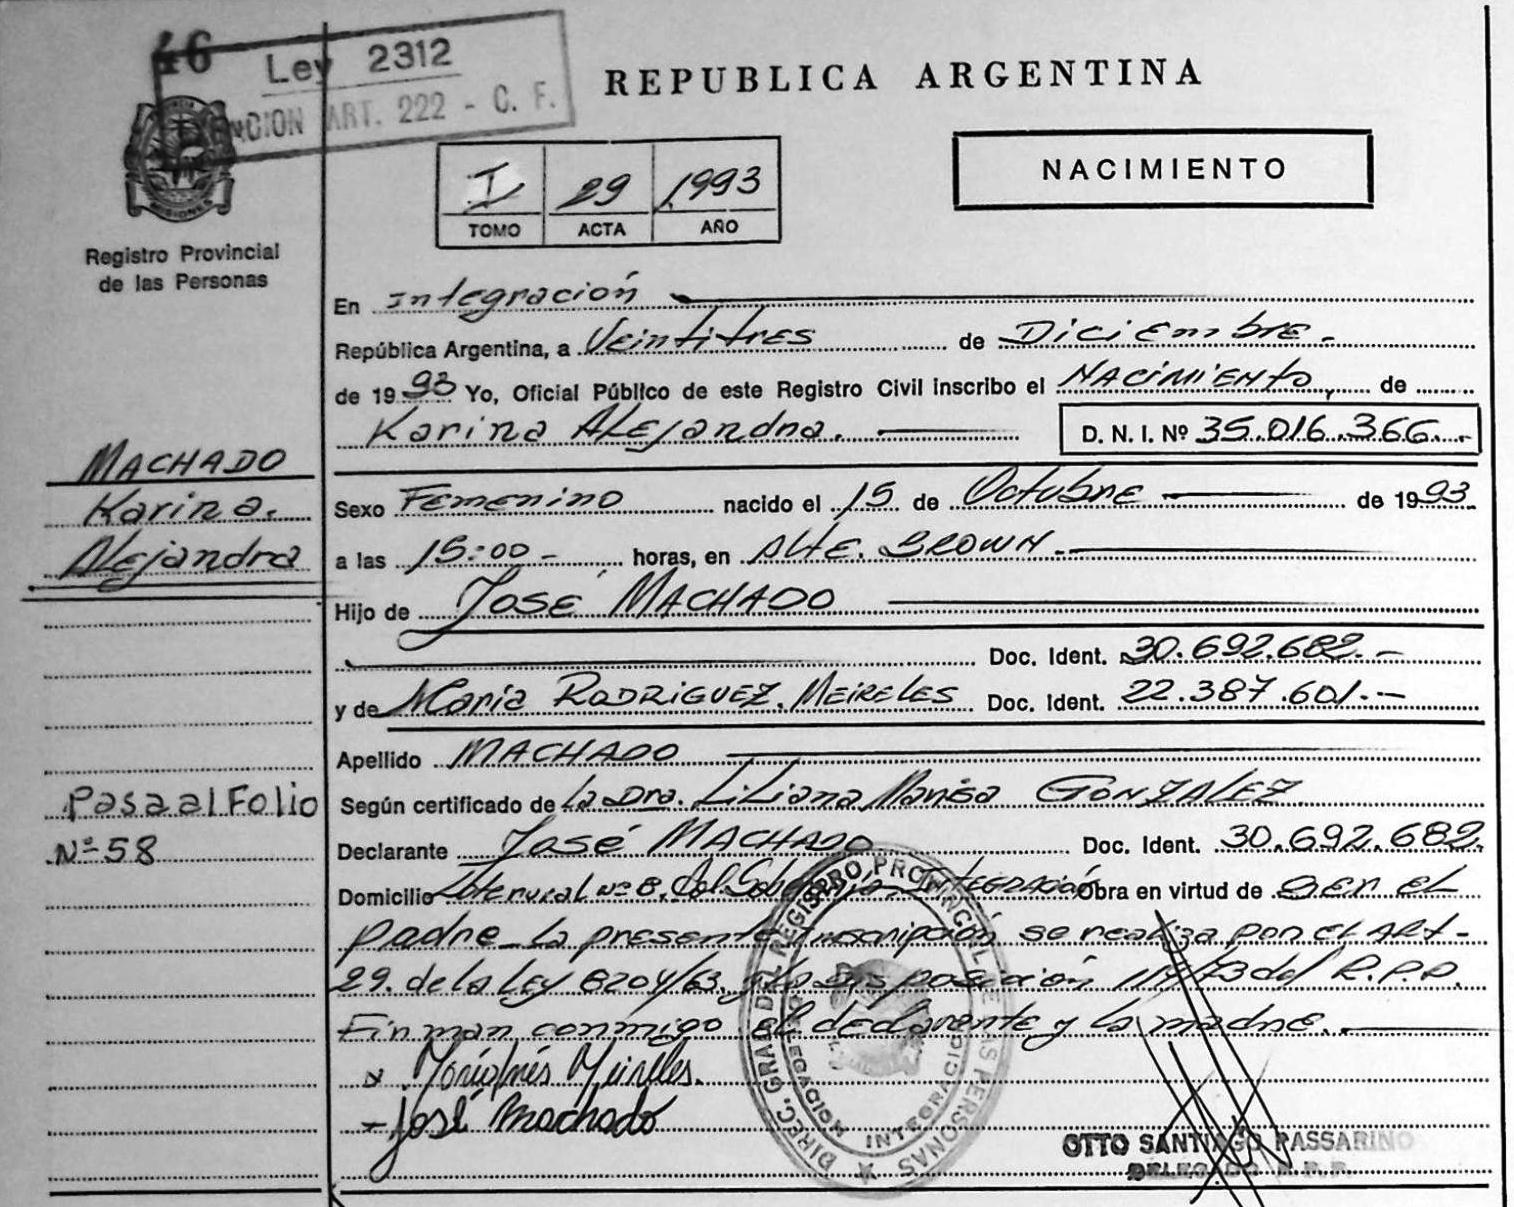 46
Ley 2312
ART. 222 - C. F.
REPUBLICA ARGENTINA
MISIONES
Registro Provincial
de las Personas
I 29 1993
TOMO ACTA AÑO
NACIMIENTO
En Integración
República Argentina, a Veintitres de Diciembre.
de 1993 Yo, Oficial Público de este Registro Civil inscribo el NACIMIENTO, de
Karina Alejandra. D. N. I. Nº 35.016.366.-
MACHADO
Karina.
Alejandra
Sexo Femenino nacido el 15 de Octubre de 1993.
a las 15:00 - horas, en ALTE. BROWN.
Hijo de José MACHADO
Doc. Ident. 30.692.682.-
y de Maria RODRIGUEZ. MEIRELES Doc. Ident. 22.387.601.-
Apellido MACHADO
Pasa al Folio
Nº 58
Según certificado de La Dra. Liliana Marisa GONZALEZ
Declarante José MACHADO Doc. Ident. 30.692.682.
Domicilio Lote rural nº 8. Col. INTEGRACIÓN Obra en virtud de ser el
padre_ La presente inscripción se realiza por el ART-
29. de la Ley 8204/63. y la Disposición 117/73 del R.P.P.
Firman conmigo el declarante y la madre.
x María Inés Meireles.
- José Machado
DIREC. GRAL. DEL REGISTRO PROVINCIAL DE LAS PERSONAS
DELEGACION INTEGRACION
OTTO SANTIAGO PASSARINO
DELEGADO R.P.P.